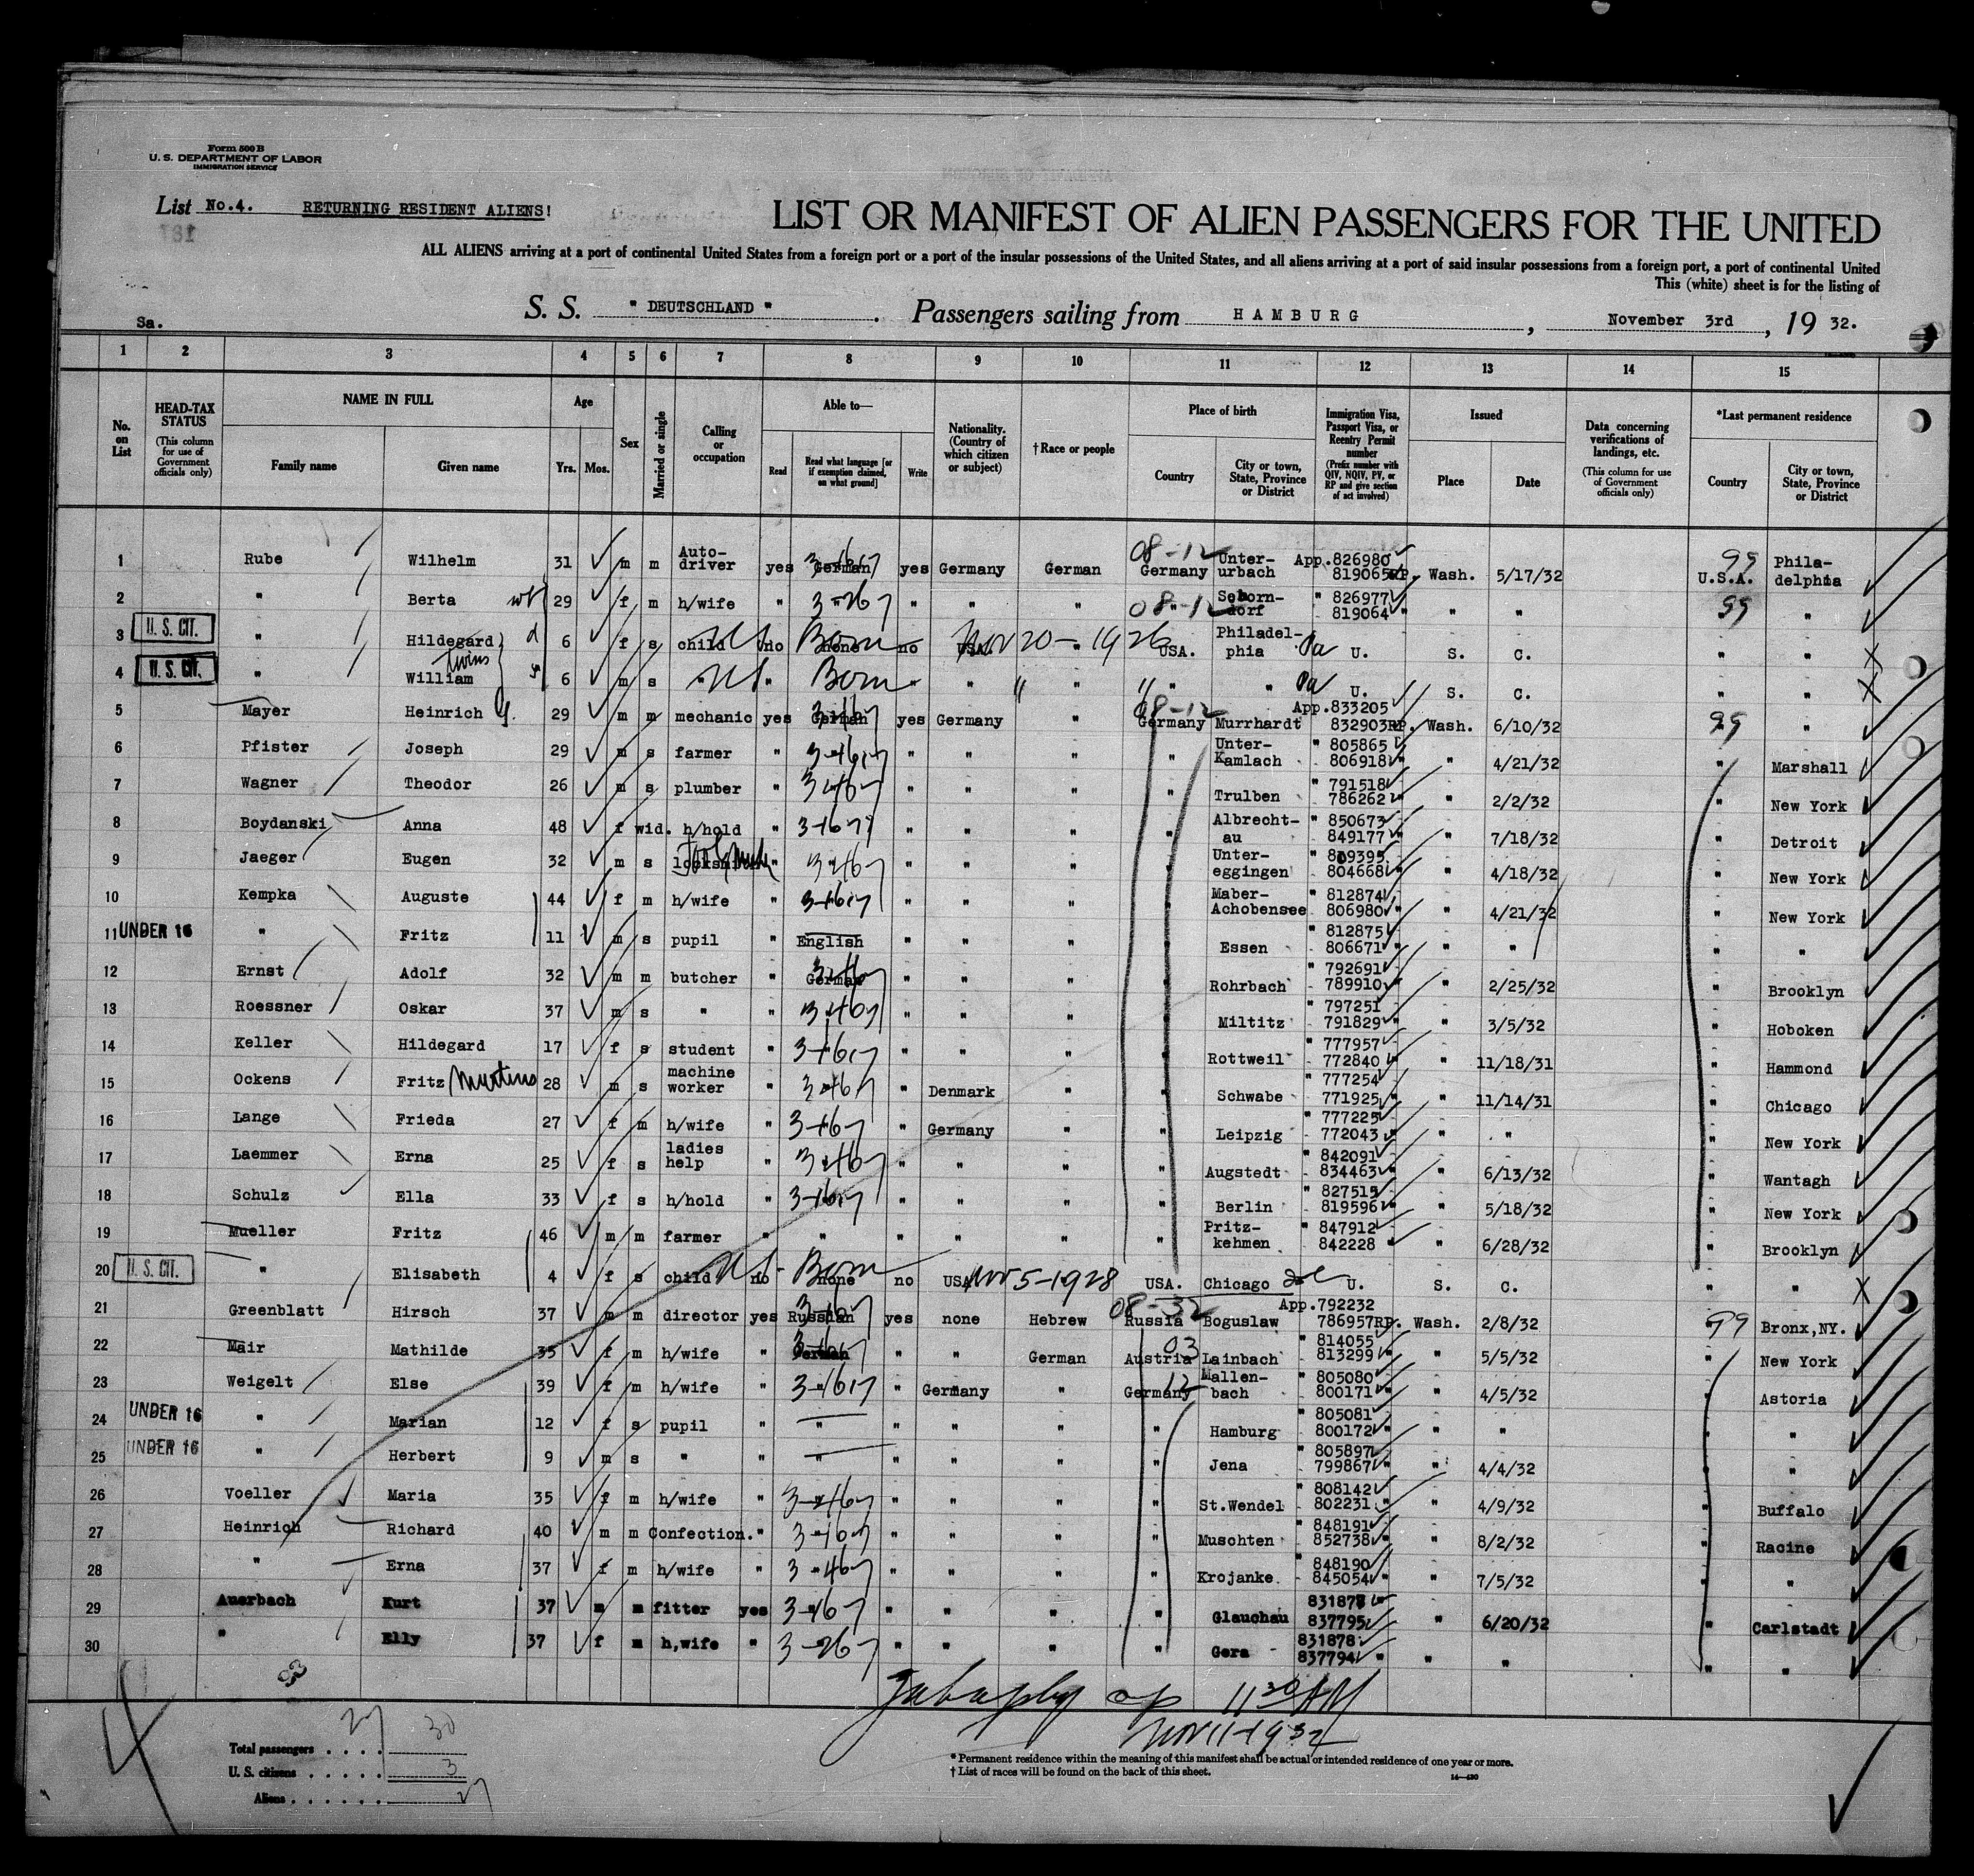 Form 500 B
U. S. DEPARTMENT OF LABOR
IMMIGRATION SERVICE
List No.4. RETURNING RESIDENT ALIENS!
LIST OR MANIFEST OF ALIEN PASSENGERS FOR THE UNITED
ALL ALIENS arriving at a port of continental United States from a foreign port or a port of the insular possessions of the United States, and all aliens arriving at a port of said insular possessions from a foreign port, a port of continental United
This (white) sheet is for the listing of
Sa.
S. S. " DEUTSCHLAND " . Passengers sailing from HAMBURG , November 3rd , 19 32.
1 2 3 4 5 6 7 8 9 10 11 12 13 14 15
No. on List
HEAD-TAX STATUS (This column for use of Government officials only)
NAME IN FULL Family name Given name
Age Yrs. Mos.
Sex
Married or single
Calling or occupation
Able to— Read Read what language [or if exemption claimed, on what ground] Write
Nationality. (Country of which citizen or subject)
† Race or people
Place of birth Country City or town, State, Province or District
Immigration Visa, Passport Visa, or Reentry Permit number (Prefix number with QIV, NQIV, PV, or RP and give section of act involved)
Issued Place Date
Data concerning verifications of landings, etc. (This column for use of Government officials only)
*Last permanent residence Country City or town, State, Province or District
1 Rube Wilhelm 31 m m Auto-driver yes German yes Germany German 08-12 Germany Unter-urbach App.826980 819065 RP. Wash. 5/17/32 99 U.S.A. Phila-delphia
2 " Berta wf 29 f m h/wife " " " " " 08-12 " Schorn-dorf " 826977 819064 " " " 99 " "
3 U. S. CIT. " Hildegard d 6 f s child US no none Born no USA. Nov 20-1926 " USA. Philadel-phia Pa U. S. C. " "
4 U. S. CIT. " William twins s 6 m s " US " Born " " " " " " Pa U. S. C. " "
5 Mayer Heinrich 29 m m mechanic yes German yes Germany " 08-12 Germany Murrhardt App.833205 832903 RP. Wash. 6/10/32 99 "
6 Pfister Joseph 29 m s farmer " " " " " " Unter-Kamlach " 805865 806918 " " 4/21/32 " Marshall
7 Wagner Theodor 26 m s plumber " " " " " " Trulben " 791518 786262 " " 2/2/32 " New York
8 Boydanski Anna 48 f wid. h/hold " " " " " Albrecht-au " 850673 849177 " " 7/18/32 " Detroit
9 Jaeger Eugen 32 m s locksmith " " " " " " Unter-eggingen " 809395 804668 " " 4/18/32 " New York
10 Kempka Auguste 44 f m h/wife " " " " " " Maber-Achobensee " 812874 806980 " " 4/21/32 " New York
11 UNDER 16 " Fritz 11 m s pupil " English " " " " Essen " 812875 806671 " " " " "
12 Ernst Adolf 32 m m butcher " German " " " " Rohrbach " 792691 789910 " " 2/25/32 " Brooklyn
13 Roessner Oskar 37 m s " " " " " " " Miltitz " 797251 791829 " " 3/5/32 " Hoboken
14 Keller Hildegard 17 f s student " " " " " " Rottweil " 777957 772840 " " 11/18/31 " Hammond
15 Ockens Fritz Martins 28 m s machine worker " " " Denmark " " Schwabe " 777254 771925 " " 11/14/31 " Chicago
16 Lange Frieda 27 f m h/wife " " " Germany " " Leipzig " 777225 772043 " " " " New York
17 Laemmer Erna 25 f s ladies help " " " " " " Augstedt " 842091 834463 " " 6/13/32 " Wantagh
18 Schulz Ella 33 f s h/hold " " " " " " Berlin " 827515 819596 " " 5/18/32 " New York
19 Mueller Fritz 46 m m farmer " " " " " " Pritz-kehmen " 847912 842228 " " 6/28/32 " Brooklyn
20 U. S. CIT. " Elisabeth 4 f s child US no none Born no USA Nov 5-1928 USA. Chicago U. S. C. " "
21 Greenblatt Hirsch 37 m m director yes Russian yes none Hebrew 08-32 Russia Boguslaw App.792232 786957 RP. Wash. 2/8/32 99 Bronx,NY.
22 Mair Mathilde 35 f m h/wife " German " " German 03 Austria Lainbach " 814055 813299 " " 5/5/32 " New York
23 Weigelt Else 39 f m h/wife " " " Germany " 12 Germany Mallen-bach " 805080 800171 " " 4/5/32 " Astoria
24 UNDER 16 " Marian 12 f s pupil " " " " " " Hamburg " 805081 800172 " " " " "
25 UNDER 16 " Herbert 9 m s " " " " " " " Jena " 805897 799867 " " 4/4/32 " "
26 Voeller Maria 35 f m h/wife " " " " " " St.Wendel " 808142 802231 " " 4/9/32 " Buffalo
27 Heinrich Richard 40 m m Confection. " " " " " " Muschten " 848191 852738 " " 8/2/32 " Racine
28 " Erna 37 f m h/wife " " " " " " Krojanke " 848190 845054 " " 7/5/32 " "
29 Auerbach Kurt 37 m m fitter yes " " " " " Glauchau 831877 837795 " 6/20/32 " Carlstadt
30 " Elly 37 f m h,wife " " " " " " Gera 831878 837794 " " " " "
11 30 AM
Nov 11-1932
Total passengers . . . . 27 30
U. S. citizens . . . . . 3
Aliens . . . . . . 27
* Permanent residence within the meaning of this manifest shall be actual or intended residence of one year or more.
† List of races will be found on the back of this sheet.
14—430